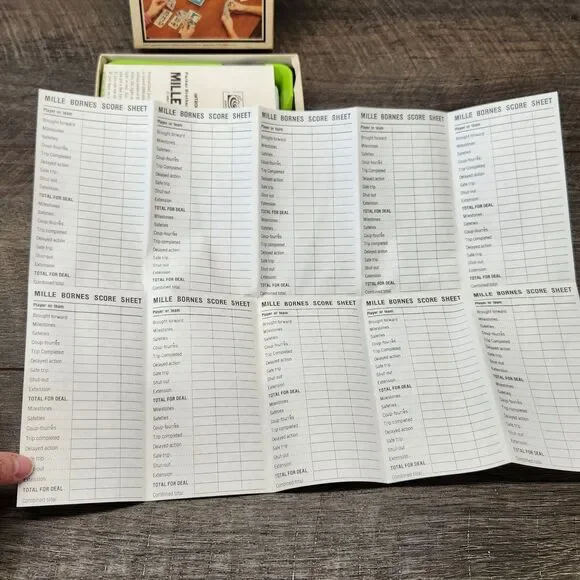 Parker Brothers
MILLE
MILLE BORNES SCORE SHEET
Player or team
Brought forward
Milestones
Safeties
Coup-fourrés
Trip Completed
Delayed action
Safe trip
Shut-out
Extension
TOTAL FOR DEAL
Milestones
Safeties
Coup-fourrés
Trip completed
Delayed action
Safe trip
Shut-out
Extension
TOTAL FOR DEAL
Combined total
MILLE BORNES SCORE SHEET
Player or team
Brought forward
Milestones
Safeties
Coup-fourrés
Trip Completed
Delayed action
Safe trip
Shut-out
Extension
TOTAL FOR DEAL
Milestones
Safeties
Coup-fourrés
Trip completed
Delayed action
Safe trip
Shut-out
Extension
TOTAL FOR DEAL
MILLE BORNES SCORE SHEET
Player or team
Brought forward
Milestones
Safeties
Coup-fourrés
Trip Completed
Delayed action
Safe trip
Shut-out
Extension
TOTAL FOR DEAL
Milestones
Safeties
Coup-fourrés
Trip completed
Delayed action
Safe trip
Shut-out
Extension
TOTAL FOR DEAL
Combined total
MILLE BORNES SCORE SHEET
Player or team
Brought forward
Milestones
Safeties
Coup-fourrés
Trip Completed
Delayed action
Safe trip
Shut-out
Extension
TOTAL FOR DEAL
Milestones
Safeties
Coup-fourrés
Trip completed
Delayed action
Safe trip
Shut-out
Extension
TOTAL FOR DEAL
Combined total
MILLE BORNES SCORE SHEET
Player or team
Brought forward
Milestones
Safeties
Coup-fourrés
Trip Completed
Delayed action
Safe trip
Shut-out
Extension
TOTAL FOR DEAL
Milestones
Safeties
Coup-fourrés
Trip completed
Delayed action
Safe trip
Shut-out
Extension
TOTAL FOR DEAL
Combined total
MILLE BORNES SCORE SHEET
Player or team
Brought forward
Milestones
Safeties
Coup-fourrés
Trip Completed
Delayed action
Safe trip
Shut-out
Extension
TOTAL FOR DEAL
Milestones
Safeties
Coup-fourrés
Trip completed
Delayed action
Safe trip
Shut-out
Extension
TOTAL FOR DEAL
Combined total
MILLE BORNES SCORE SHEET
Player or team
Brought forward
Milestones
Safeties
Coup-fourrés
Trip Completed
Delayed action
Safe trip
Shut-out
Extension
TOTAL FOR DEAL
Milestones
Safeties
Coup-fourrés
Trip completed
Delayed action
Safe trip
Shut-out
Extension
TOTAL FOR DEAL
Combined total
MILLE BORNES SCORE SHEET
Player or team
Brought forward
Milestones
Safeties
Coup-fourrés
Trip Completed
Delayed action
Safe trip
Shut-out
Extension
TOTAL FOR DEAL
Milestones
Safeties
Coup-fourrés
Trip completed
Delayed action
Safe trip
Shut-out
Extension
TOTAL FOR DEAL
Combined total
MILLE BORNES SCORE SHEET
Player or team
Brought forward
Milestones
Safeties
Coup-fourrés
Trip Completed
Delayed action
Safe trip
Shut-out
Extension
TOTAL FOR DEAL
Milestones
Safeties
Coup-fourrés
Trip completed
Delayed action
Safe trip
Shut-out
Extension
TOTAL FOR DEAL
Combined total
MILLE BORNES SCORE
Player or team
Brought forward
Milestones
Safeties
Coup-fourrés
Trip Completed
Delayed action
Safe trip
Shut-out
Extension
TOTAL FOR DEAL
Milestones
Safeties
Coup-fourrés
Trip completed
Delayed action
Safe trip
Shut-out
Extension
TOTAL FOR DEAL